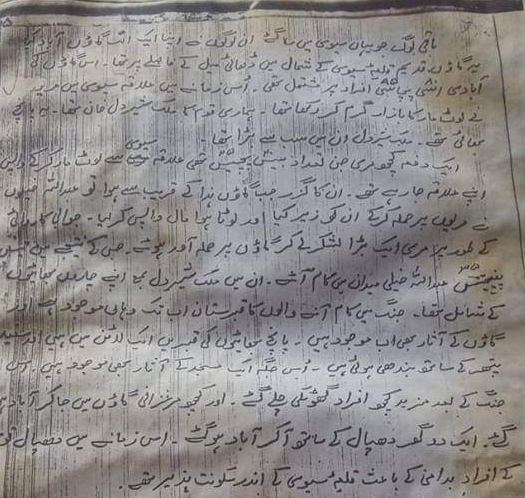 باقی لوگ خوبیاں سیوی میں سما گئے ان لوگوں نے اپنا ایک الگ گاؤں آباد کیا
یہ گاؤں قدیم قلعہ سیوی کے شمال میں ڈھائی میل کے فاصلے پر تھا۔ اس گاؤں کی
آبادی اسّی پچاسی افراد پر مشتمل تھی۔ اُس زمانے میں علاقہ سیوی میں مری
نے لوٹ مار کا بازار گرم کر رکھا تھا۔ ہماری قوم کا ملک شیر دل خان تھا۔ یہ پانچ
بھائی تھے۔ ملک شیر دل ان میں سب سے بڑا تھا۔
ایک دفعہ کچھ مری جن تعداد بیس پچیس تھی علاقہ سیوی سے لوٹ مار کر کے واپس
اپنے علاقہ جا رہے تھے۔ ان کا گزر جب گاؤں ہذا کے قریب سے ہوا تو عبداللہ خیلوں
نے مریوں پر حملہ کر کے ان کو زیر کیا اور لوٹا ہوا مال واپس کر لیا۔ جوابی کاروائی
کے طور پر مری ایک بڑا لشکر لے کر گاؤں پر حملہ آور ہوئے۔ جس کے نتیجے میں
پینتیس عبداللہ خیل میدان میں کام آئے۔ ان میں ملک شیر دل بمع اپنے چاروں بھائیوں
کے شامل تھا۔ جنگ میں کام آنے والوں کا قبرستان اب تک وہاں موجود ہے اور
گاؤں کے آثار بھی اب موجود ہیں۔ پانچ بھائیوں کی قبریں ایک لائن میں ہیں اور سفید
پتھر کے ساتھ بندھی ہوئی ہیں۔ اُس جگہ ایک مسجد کے آثار بھی موجود ہیں۔ اس
جنگ کے بعد مزید کچھ افراد گھوٹکی چلے گئے۔ اور کچھ مرغزانی گاؤں میں جا کر آباد
گئے۔ ایک دو گھر دھپال کے ساتھ آ کر آباد ہو گئے۔ اس زمانے میں دھپال قوم
کے افراد بدامنی کے باعث قلعہ سیوی کے اندر سکونت پذیر تھے۔